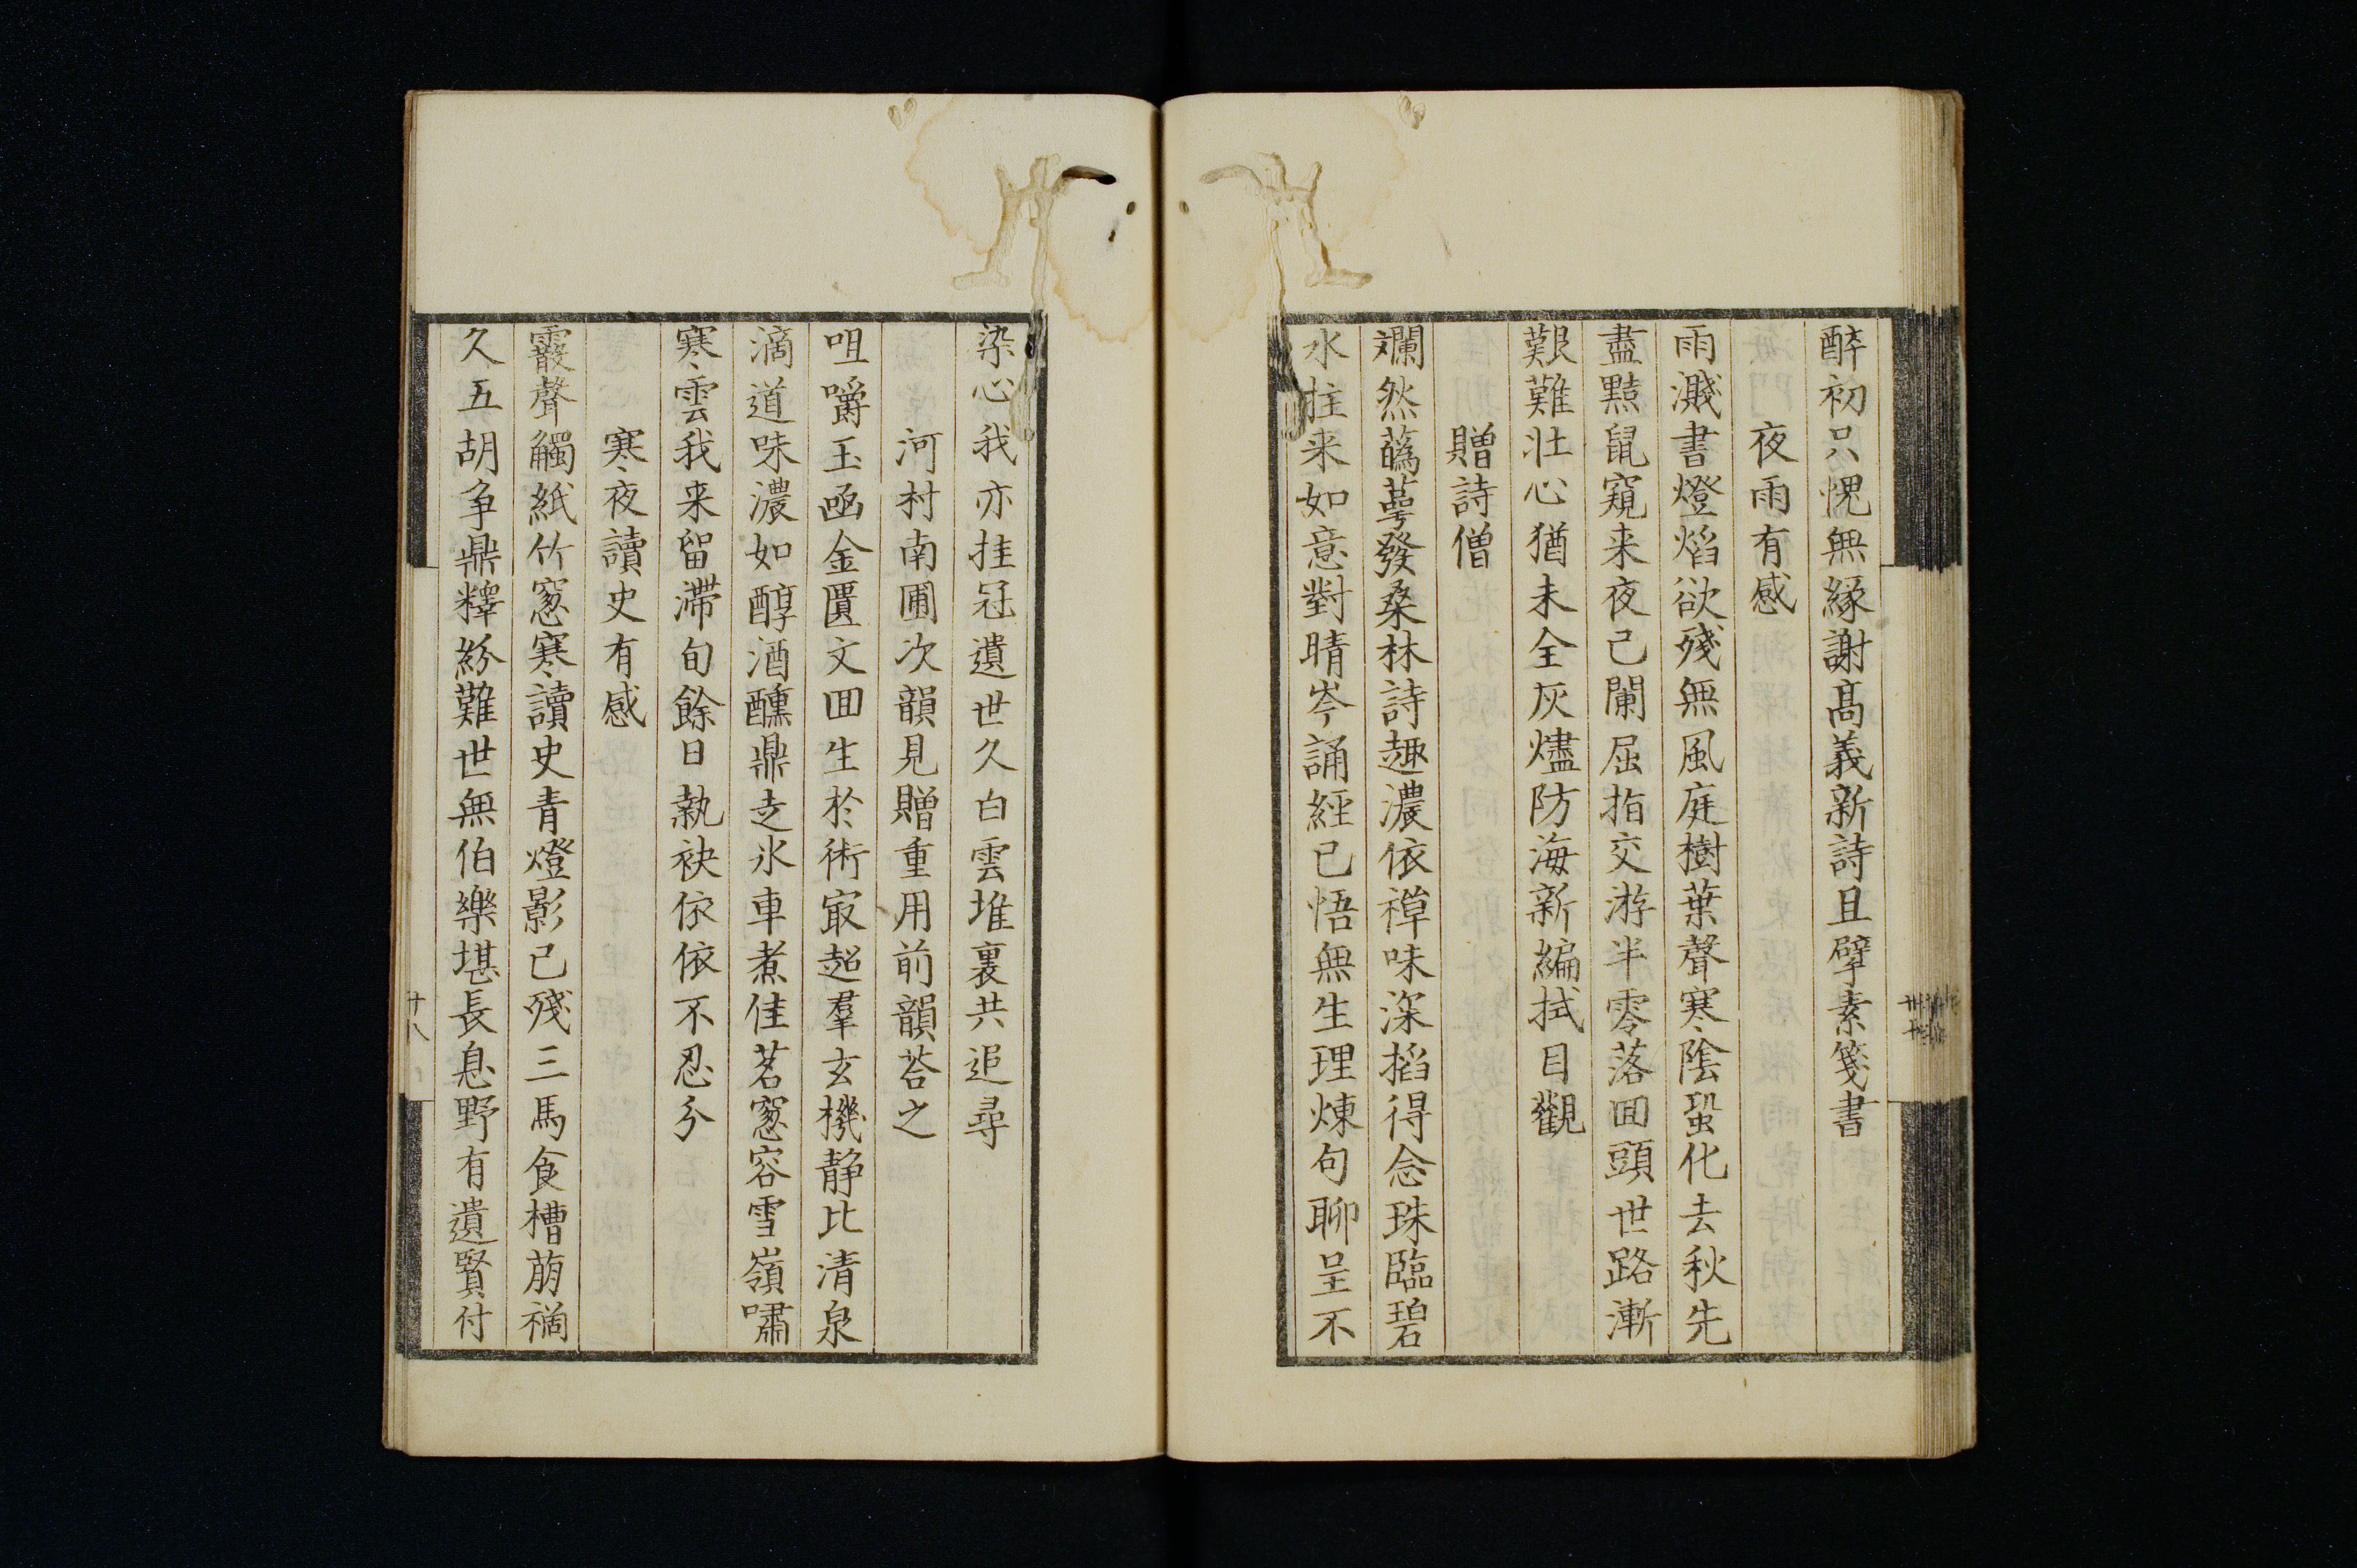 醉初只愧無緣謝髙義新詩且擘素箋書
夜雨有感
雨濺書燈焰欲殘無風庭樹葉聲寒陰蛩化去秋先
盡黠鼠窺来夜已闌屈指交游半零落囬頭世路漸
艱難壮心猶未全灰燼防海新編拭目觀
贈詩僧
斕然蕍蕚發桑林詩趣濃依禪味深搯得念珠臨碧
水拄来如意對晴岑誦經已悟無生理煉句聊呈不
染心我亦挂冠遺世久白雲堆裏共追尋
河村南圃次韻見贈重用前韻荅之
咀嚼玉凾金匱文囬生於術㝡超羣玄機静比清泉
滴道味濃如醇酒醺鼎赱氷車煮佳茗窓容雪嶺嘯
寒雲我来留滞旬餘日執袂依依不忍分
寒夜讀史有感
霰聲觸紙竹窓寒讀史青燈影已殘三馬食槽萠禍
久五胡争鼎釋紛難世無伯樂堪長息野有遺賢付
十八